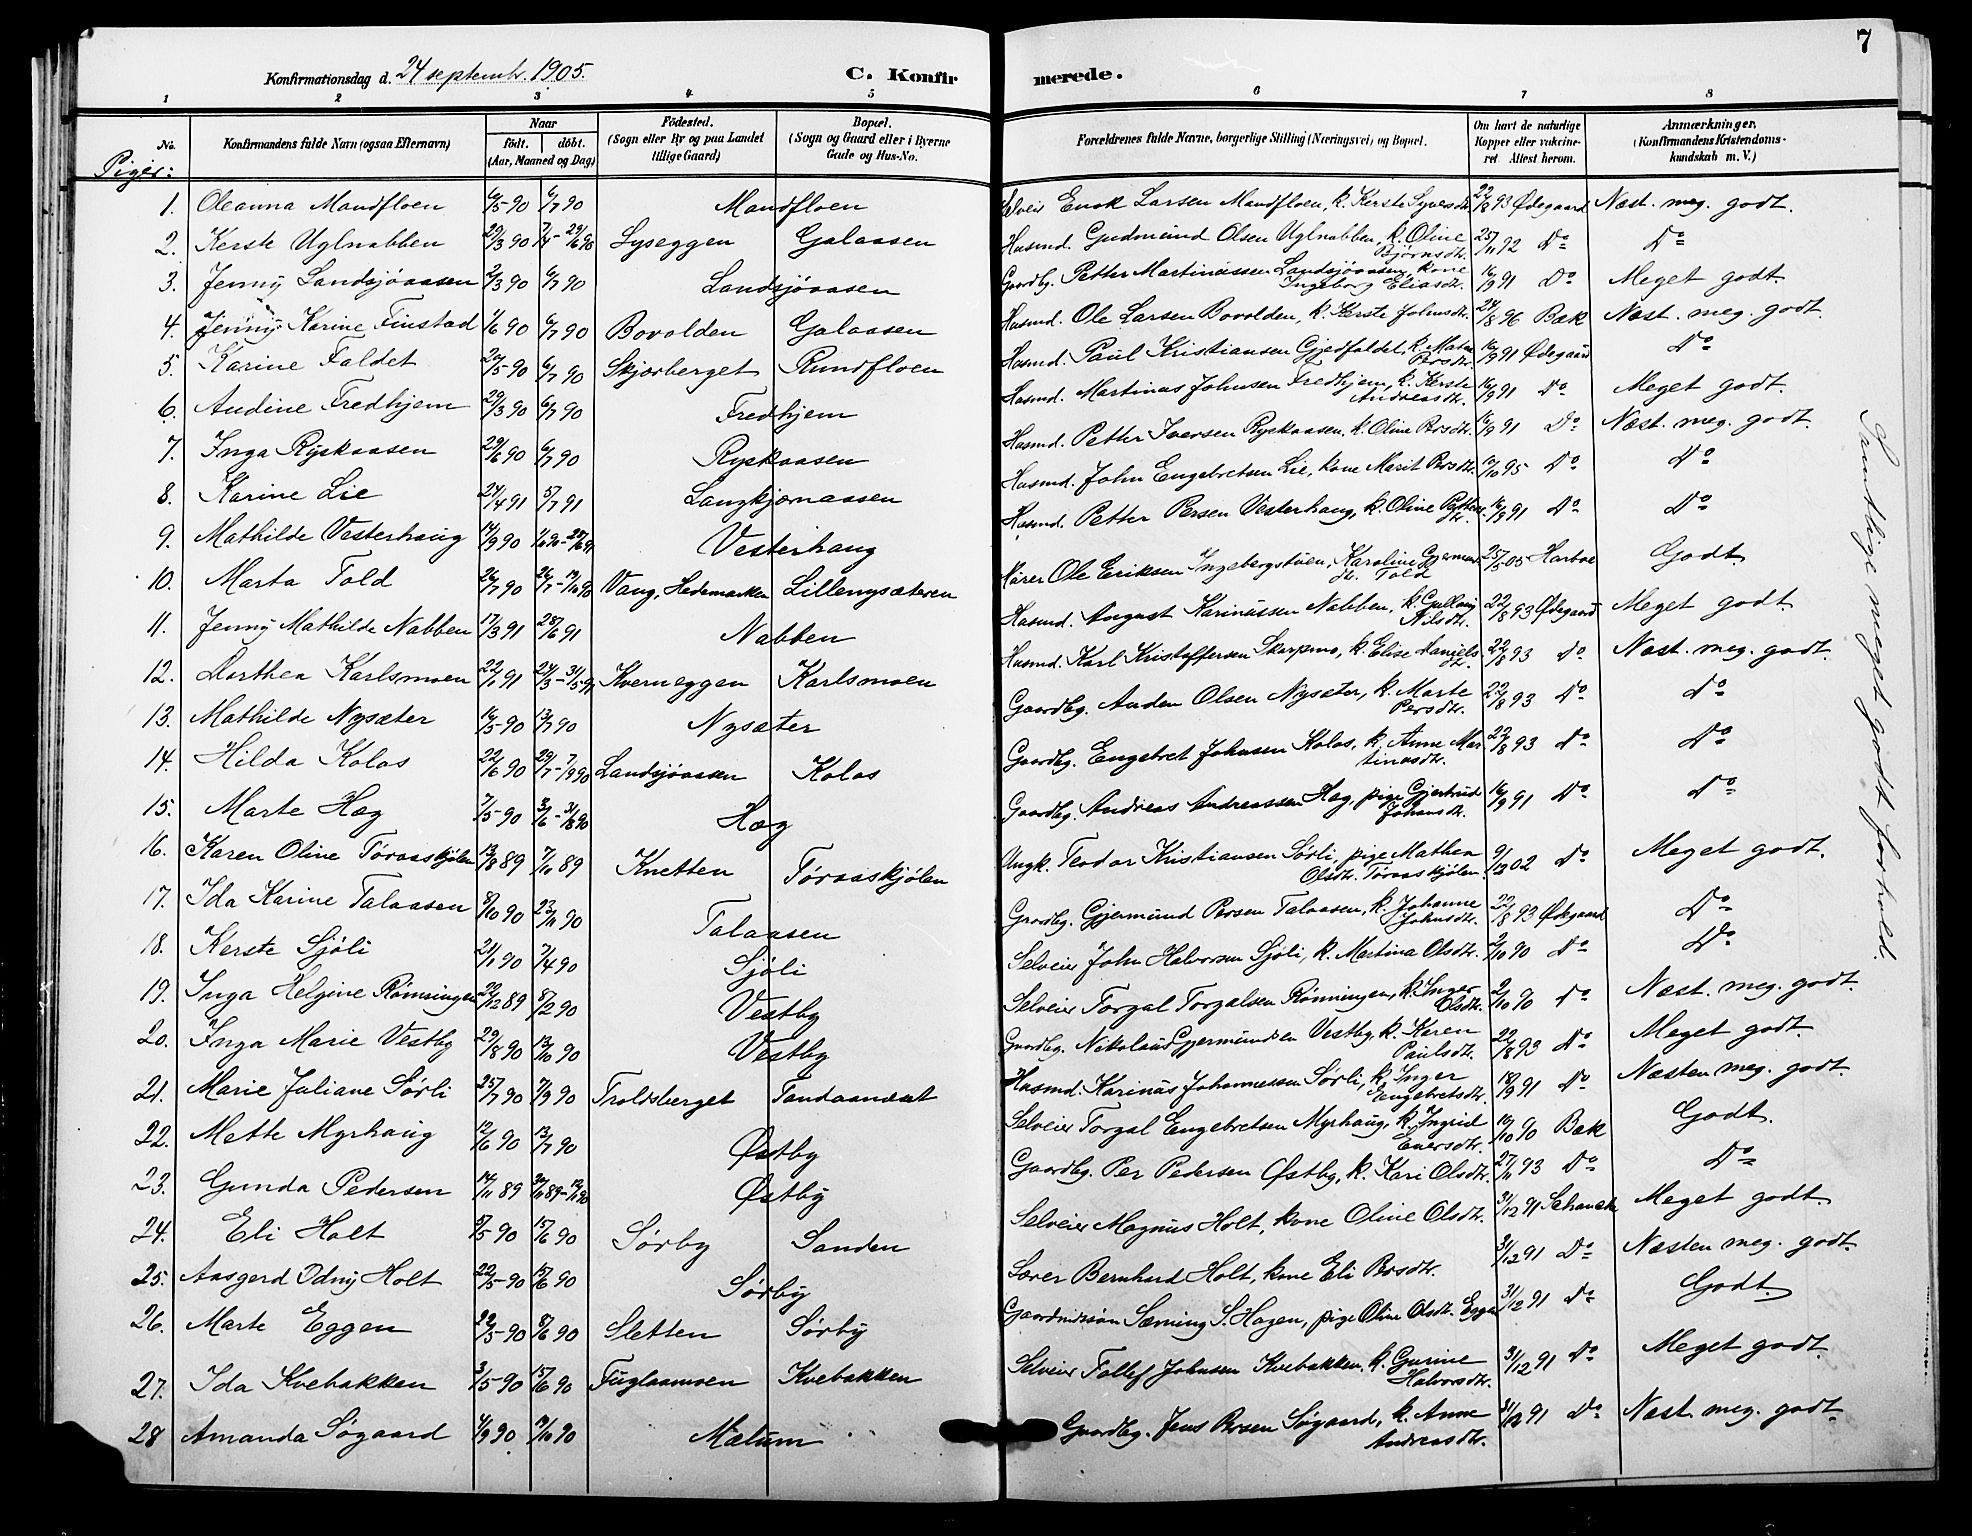 7
Konfirmationsdag d. 24 septembr. 1905. C. Konfirmerede.
1 2 3 4 5 6 7 8
No.
Konfirmandens fulde Navn (ogsaa Efternavn)
Naar
födt. döbt.
(Aar, Maaned og Dag)
Födested.
(Sogn eller By og paa Landet
tillige Gaard)
Bopæl.
(Sogn og Gaard eller i Byerne
Gade og Hus-No.
Forældrenes fulde Navne, borgerlige Stilling (Næringsvei) og Bopæl.
Om havt de naturlige
Kopper eller vaccineret
Attest herom.
Anmærkninger,
(Konfirmandens Kristendoms-
kundskab m. V.)
Piger:
1. Oleanna Mandfloen 6/5-90 6/7 90 Mandfloen Selveier Enok Larsen Mandfloen, k. Kerste Syversdtr. 22/8 93 Ødegaard Næst. meg. godt.
2. Kerste Uglnabben 29/3 90 7/4 - 29/6 90 Lyseggen Galaasen Husmd. Gudmund Olsen Uglnabben, k. Oline Bjørnsdtr. 25/11 92 Do Do
3. Jenny Landsjøaasen 2/3 90 6/7 90 Landsjøaasen Gaardbg. Petter Martinussen Landsjøaasen, kone Ingeborg Eliasdtr. 16/9 91 Do Meget godt.
4. Jenny Karine Finstad 1/6 90 6/7 90 Bovolden Galaasen Husmd. Ole Larsen Bovolden, k. Kerste Johnsdtr. 24/8 96 Bæk Næst. meg. godt.
5. Karine Faldet 20/5-90 6/7 90 Skjærberget Rundfloen Husmd. Paul Kristiansen Gjedfaldet, k. Mathea Persdtr. 16/9 91 Ødegaard Do
6. Audine Fredhjem 29/3 90 6/7 90 Fredhjem Husmd. Martinus Johnsen Fredhjem, k. Kerste Andreasdtr. 16/9 91 Do Meget godt.
7. Inga Ryskaasen 29/6 90 6/7 90 Ryskaasen Husmd. Petter Iversen Ryskaasen, k. Oline Persdtr. 16/9 91 Do Næst. meg. godt.
8. Karine Lie 24/4 91 5/7 91 Langkjernaasen Husmd. John Engebretsen Lie, kone Marit Persdtr. 10/10 95 Do Do
9. Mathilde Vesterhaug 14/9 90 Vesterhaug Husmd. Petter Persen Vesterhaug, k. Oline Pettersdtr. 16/9 91 Do Do
10. Marta Told 26/7 90 Vang, Hedemarken Lillenysæteren Ole Eriksen Ingebergstuen, Karoline Gjermundsdtr. Told 25/5 05 Harboe Godt.
11. Jenny Mathilde Nabben 17/3 91 28/6 91 Nabben Husmd. August Karinussen Nabben, k. Gullaug Nilsdtr. 22/8 93 Ødegaard Meget godt.
12. Dorthea Karlsmoen 22/1 91 24/3 - 31/5-91 Kverneggen Karlsmoen Husmd. Karl Kristoffersen Skarpmo, k. Elise Danielsdtr. 22/8 93 Do Næst. meg. godt.
13. Mathilde Nysæter 16/5-90 13/7 90 Nysæter Gaardbg. Auden Olsen Nysæter, k. Marte Persdtr. 22/8 93 Do Do
14. Hilda Kolos 22/6 90 29/7 - 7/9 90 Landsjøaasen Kolos Gaardbg. Engebret Johnsen Kolos, k. Anne Martinusdtr. 22/8 93 Do Do
15. Marte Hæg 7/5-90 3/6 - 31/8 90 Hæg Gaardbg. Andreas Andreassen Hæg, pige Gjertrud Johansdtr. 16/9 91 Do Do
16. Karen Oline Tøraaskjølen 13/8 89 7/10 89 Knetten Tøraaskjølen Ungk. Teodor Kristiansen Sørli, pige Mathea Olsdtr. Tøraaskjølen 9/12 02 Do Meget godt.
17. Ida Karine Talaasen 8/10 90 23/11 90 Talaasen Gaardbg. Gjermund Persen Talaasen, k. Johanne Johnsdtr. 22/8 93 Ødegaard Do
18. Kerste Sjøli 21/1 90 7/4 90 Sjøli Selveier John Halvorsen Sjøli, k. Martina Olsdtr. 2/10 90 Do Do
19. Inga Helgine Rønningen 22/12 89 8/2 90 Vestby Selveier Torgal Torgalsen Rønningen, k. Inger Olsdtr. 2/10 90 Do Næst. meg. godt.
20. Inga Marie Vestby 29/8 90 13/10 90 Vestby Gaardbg. Nikolaus Gjermundsen Vestby, k. Karen Paulsdtr. 22/8 93 Do Meget godt.
21. Marie Juliane Sørli 25/7 90 7/9 90 Troldsberget Tandaandset Husmd. Karinus Johannessen Sørli, k. Inger Engebretsdtr. 18/9 91 Do Næsten meg. godt.
22. Mette Myrhaug 12/6 90 13/7 90 Østby Selveier Torgal Engebretsen Myrhaug, k. Ingrid Einersdtr. 10/10 90 Bæk Godt.
23. Gunda Pedersen 14/11 89 Østby Gaardbg. Per Pedersen Østby, k. Kari Olsdtr. 27/11 93 Do Do
24. Eli Holt 5/5-90 15/6 90 Sørby Sanden Selveier Magnus Holt, kone Oline Olsdtr. 31/12 91 Schanche Meget godt.
25. Aasgerd Odny Holt 22/5-90 15/6 90 Sørby Lærer Bernhard Holt, kone Eli Persdtr. 31/12 91 Do Næsten meg. godt.
26. Marte Eggen 22/5-90 8/6 90 Sletten Sørby Gaardmdssøn Sæming S. Hagen, pige Oline Olsdtr. Eggen 31/12 91 Do Godt.
27. Ida Kvebakken 3/5-90 15/6 90 Fuglaamoen Kvebakken Selveier Tollef Johnsen Kvebakken, k. Gurine Halvorsdtr. 31/12 91 Do Meget godt.
28 Amanda Søgaard 4/9 90 19/10 90 Mælum Gaardbg. Jens Persen Søgaard, k. Anne Andreasdtr. 31/12 91 Do Næst. meg. godt.
Samtlige meget godt forhold.